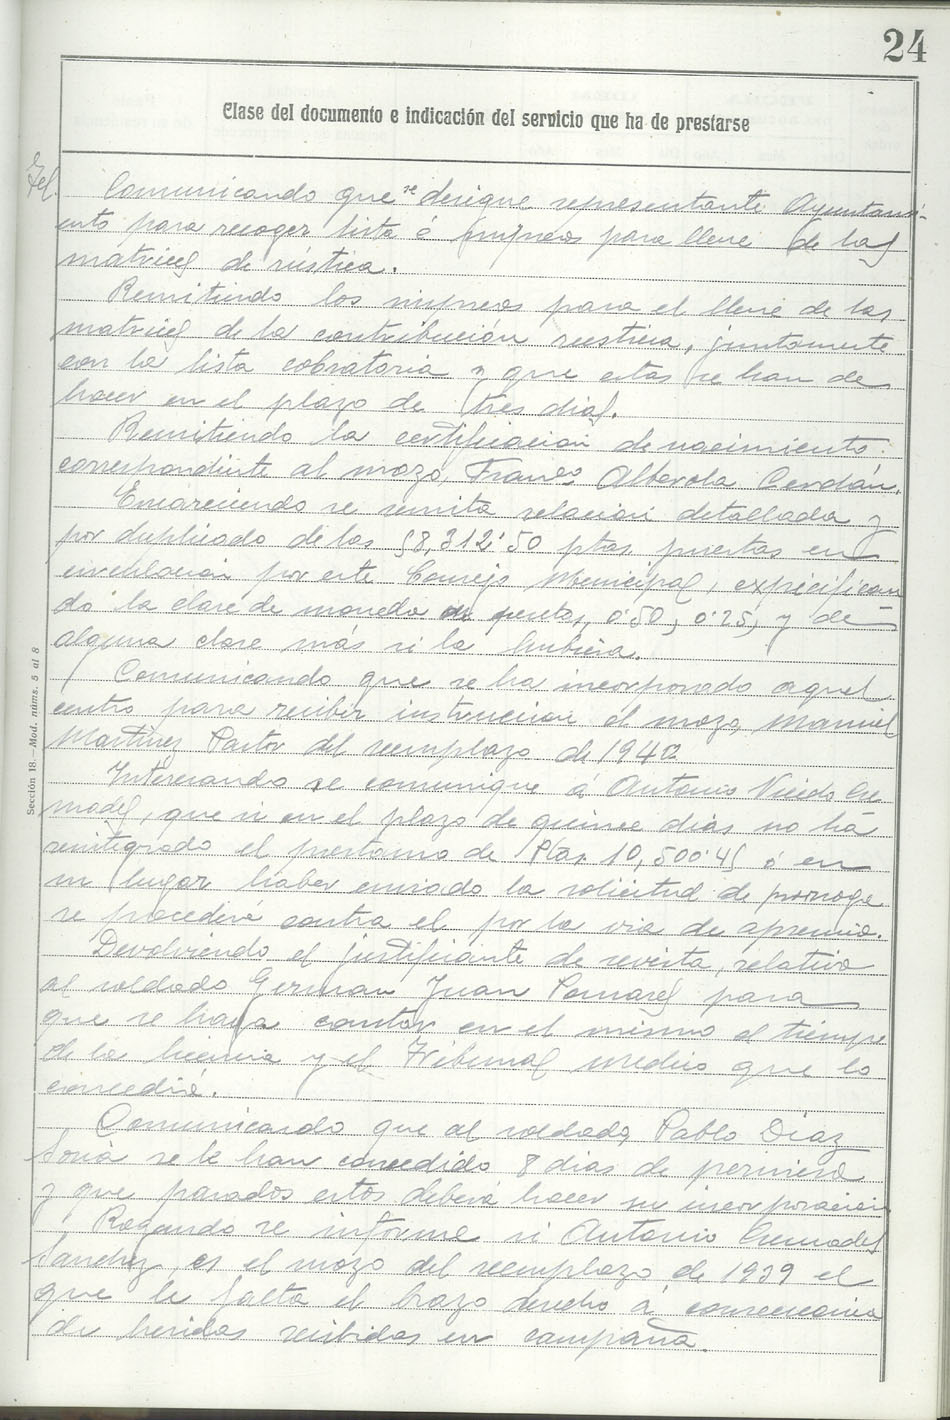 24
Clase del documento e indicación del servicio que ha de prestarse
Tel. Comunicando que se designe representante Ayuntami-
ento para recoger lista é impresos para llene de las
matrices de rústica.
Remitiendo los impresos para el llene de las
matrices de la contribución rustica, juntamente
con la lista cobratoria y que estas se han de
hacer en el plazo de tres dias.
Remitiendo la certificacion de nacimiento
correspondiente al mozo Franco Alberola Cerdán.
Encareciendo se remita relacion detallada y
por duplicado de las 58,312'50 ptas puestas en
circulacion por este Consejo Municipal, expecifican
do la clase de moneda en peseta, 0'50, 0'25, y de
alguna clase más si la hubiera.
Comunicando que se ha incorporado aquel
centro para recibir instruccion el mozo, Manuel
Martinez Pastor del reemplazo de 1942
Interesando se comunique á Antonio Vicedo Cre
mades, que si en el plazo de quince dias no ha
reintegrado el prestamo de Ptas. 10,500'45 ó en
su lugar haber enviado la solicitud de prorroga
se procederá contra el por la via de apremio.
Devolviendo el justificante de revista, relativo
al soldado German Juan Pomares para
que se haga constar en el mismo el tiempo
de la licencia y el Tribunal medico que lo
concedió.
Comunicando que al soldado, Pablo Díaz
Soriá se le han concedido 8 dias de permiso
y que pasados estos deberá hacer su incorporacion
Rogando se informe si Antonio Cremades
Sanchez, es el mozo del reemplazo de 1939 el
que le falta el brazo derecho á consecuencia
de heridas recibidas en campaña.
Sección 18.—Mod. núms. 5 al 8